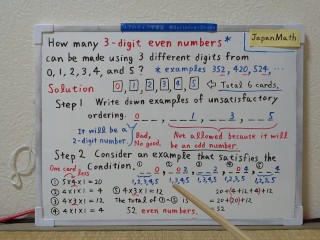 JapanMath
How many 3-digit even numbers*
can be made using 3 different digits from
0, 1, 2, 3, 4, and 5 ? * examples 352, 420, 524, ...
Solution 0 1 2 3 4 5 ← Total 6 cards.
Step 1 Write down examples of unsatisfactory
ordering. 0 _ _, _ _ 1, _ _ 3, _ _ 5
It will be a
2-digit number.
Bad,
No good,
Not allowed because it will
be an odd number.
Step 2 Consider an example that satisfies the
Condition.
① _ _ 0, ② _ 0 2, ③ _ _ 2, ④ _ 0 4, ⑤ _ _ 4
One card less
1,2,3,4,5
① 5×4×1 = 20
② 4×1×1 = 4
③ 4×3×1 = 12
④ 4×1×1 = 4
⑤ 4×3×1 = 12
The total of ①~⑤ is
52 even numbers.
20+(4+12+4)+12
= 20+(20)+12
= 52